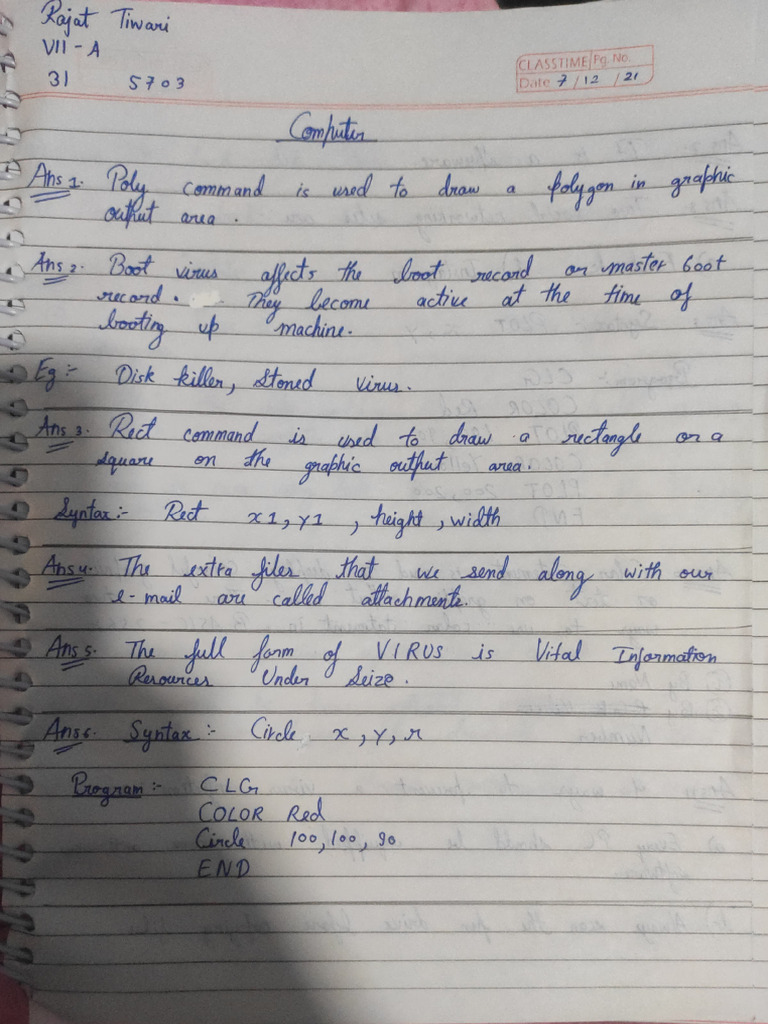 Rajat Tiwari
VII - A
31 5703
CLASSTIME Pg. No.
Date 7 / 12 / 21
Computer
Ans 1. Poly command is used to draw a polygon in graphic
output area.
Ans 2. Boot virus affects the boot record or master boot
record. They become active at the time of
booting up machine.
Eg :- Disk killer, Stoned virus.
Ans 3. Rect command is used to draw a rectangle or a
square on the graphic output area.
Syntax :- Rect x1, y1, height, width
Ans 4. The extra files that we send along with our
e-mail are called attachments.
Ans 5. The full form of VIRUS is Vital Information
Resources Under Seize.
Ans 6. Syntax :- Circle x, y, r
Program :- CLG
COLOR Red
Circle 100, 100, 90
END